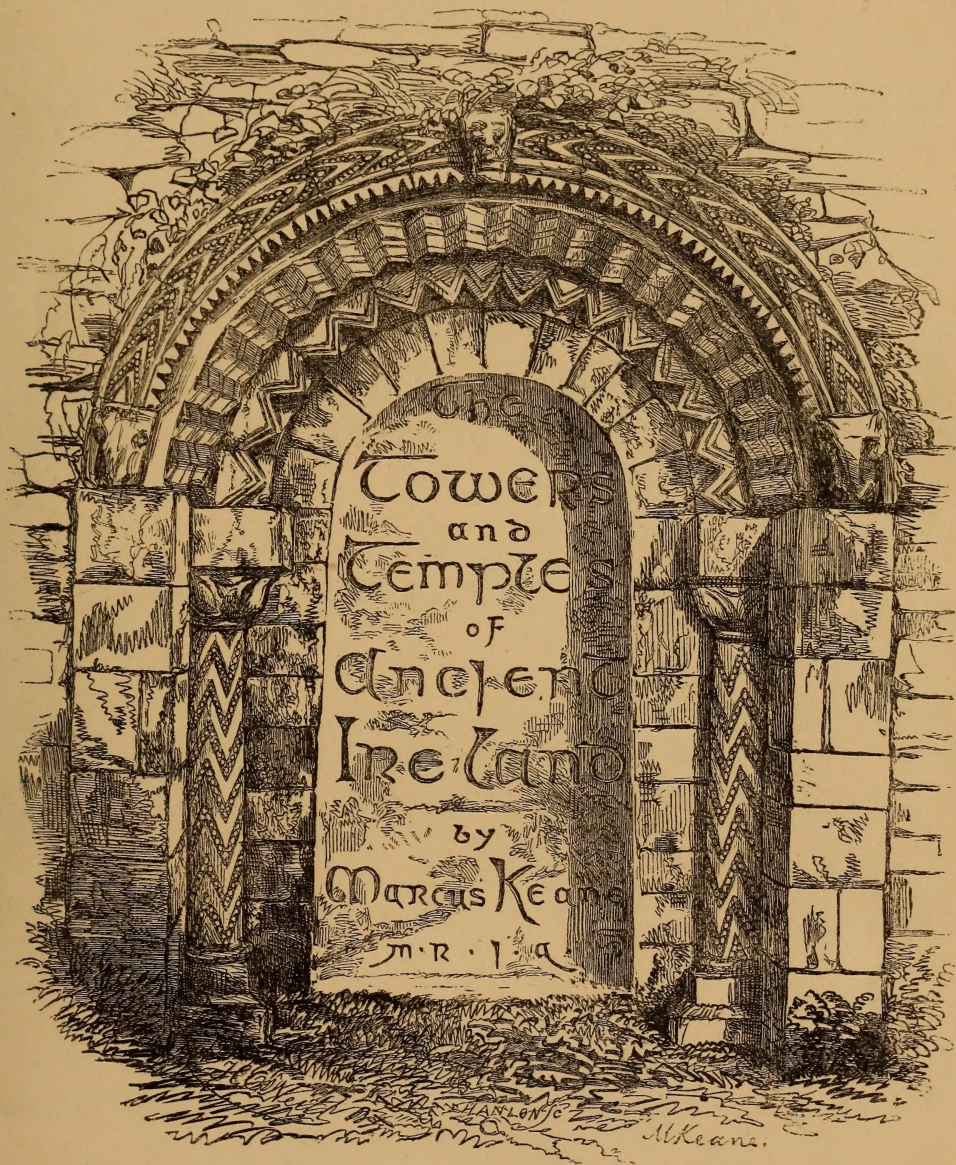 The
Towers
and
Temples
of
Ancient
Ireland
by
Marcus Keane
M·R·I·A·
HANLON Sc
MKeane.